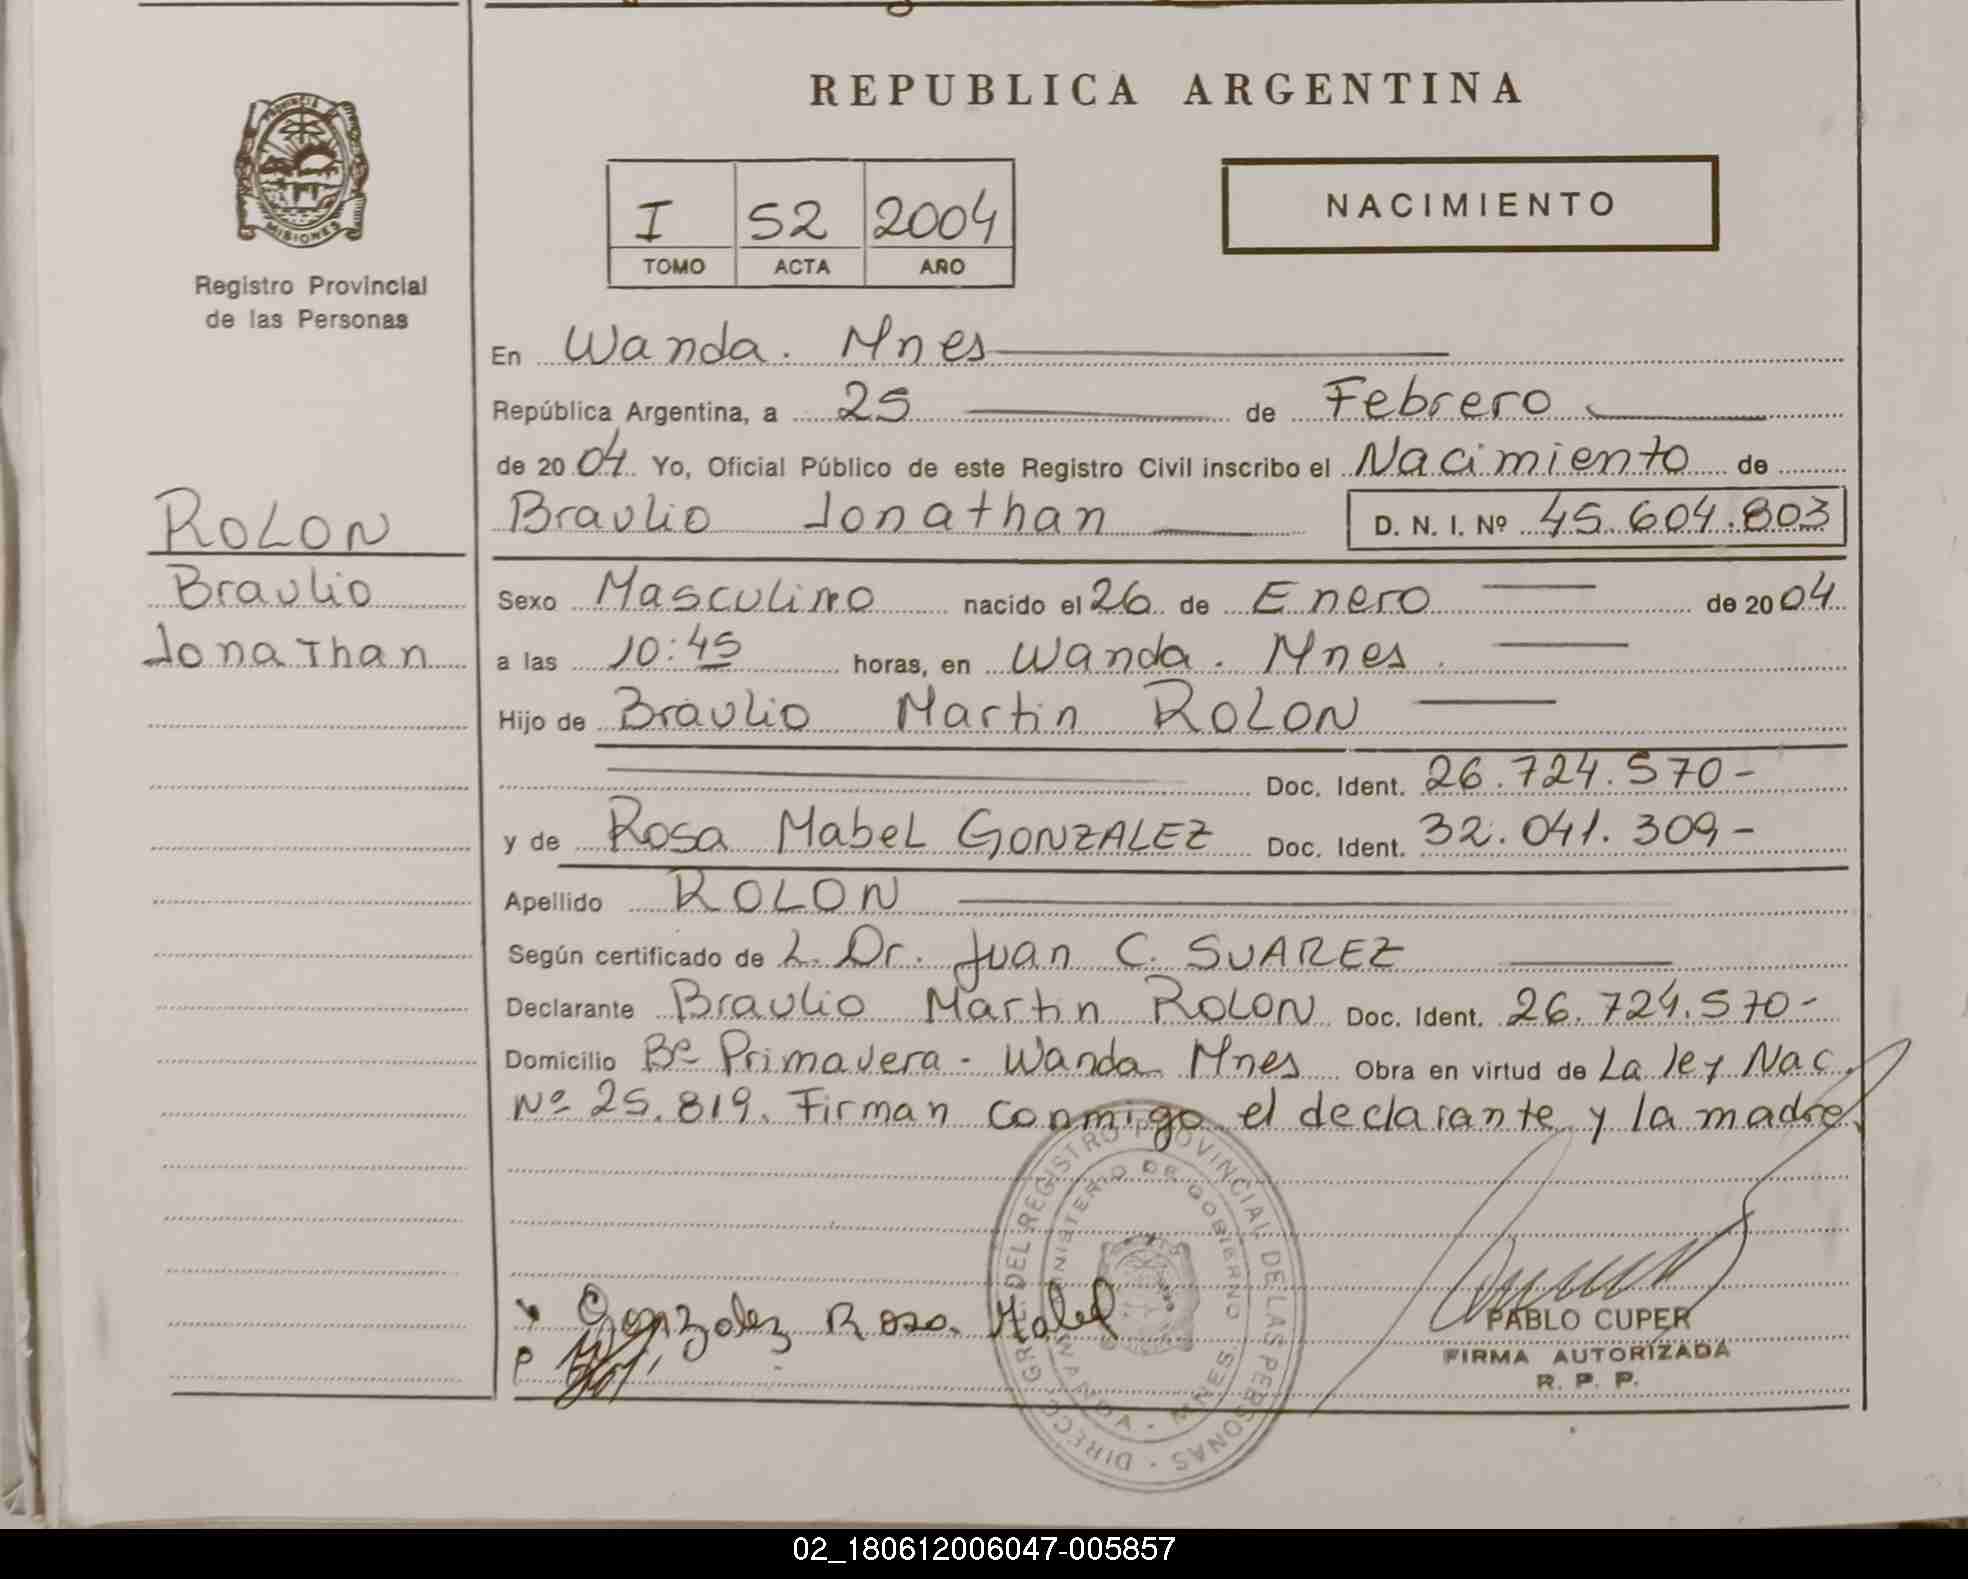 REPUBLICA ARGENTINA
PROVINCIA DE MISIONES
Registro Provincial
de las Personas
I 52 2004
TOMO ACTA AÑO
NACIMIENTO
En Wanda. Mnes
República Argentina, a 25 de Febrero
de 2004. Yo, Oficial Público de este Registro Civil inscribo el Nacimiento de
Braulio Jonathan D. N. I. Nº 45.604.803
ROLON
Braulio
Jonathan
Sexo Masculino nacido el 26 de Enero de 2004
a las 10:45 horas, en Wanda. Mnes.
Hijo de Braulio Martin ROLON
Doc. Ident. 26.724.570-
y de Rosa Mabel GONZALEZ Doc. Ident. 32.041.309-
Apellido ROLON
Según certificado de L. Dr. Juan C. SUAREZ
Declarante Braulio Martin ROLON Doc. Ident. 26.724.570-
Domicilio Bº Primavera - Wanda Mnes Obra en virtud de La ley Nac.
Nº 25.819. Firman conmigo el declarante y la madre.
DIRECC. GRL. DEL REGISTRO PROVINCIAL DE LAS PERSONAS
MINISTERIO DE GOBIERNO
WANDA - MNES.
Gonzalez Rosa Mabel
P
PABLO CUPER
FIRMA AUTORIZADA
R. P. P.
02_180612006047-005857